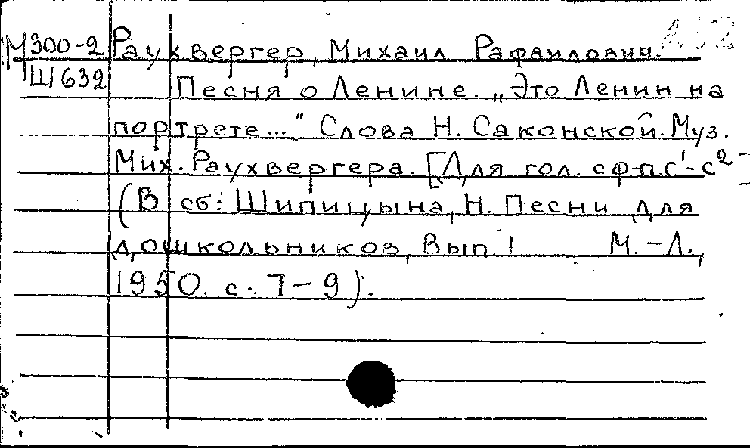 М300-2 Раухвергер, Михаил Рафаилович.
Ш632 Песня о Ленине. „Это Ленин на
портрете..." Слова Н. Саконской. Муз.
Мих. Раухвергера. [Для гол. с ф-п. с¹-с²-
(В сб: Шипицына, Н. Песни для
дошкольников, Вып. 1 М.-Л.,
1950. с. 7-9).